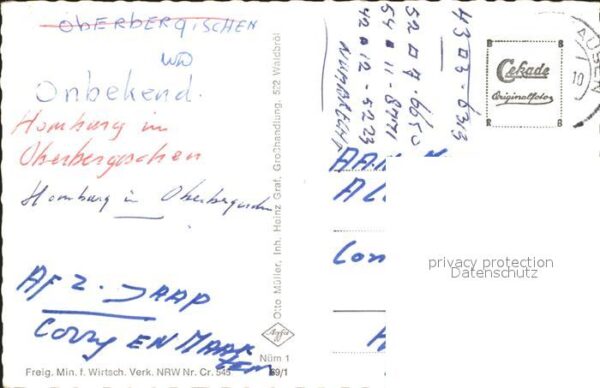 OBERBERGISCHEN
Onbekend.
Homburg in
Oberbergischen
Homburg in Oberbergischen
AFZ. JAAP
Corry EN MAAR
TEN
Freig. Min. f. Wirtsch. Verk. NRW Nr. Cr. 545
Nüm 1
69/1
Agfa
Otto Müller, Inh. Heinz Graf, Großhandlung, 522 Waldbröl
NUMBRECHT
42 12-5223
54 11-8771
52 7-6650
43 3-6313
Cekade
Originalfoto
AUSEN
10
AA
AL
Con
privacy protection
Datenschutz